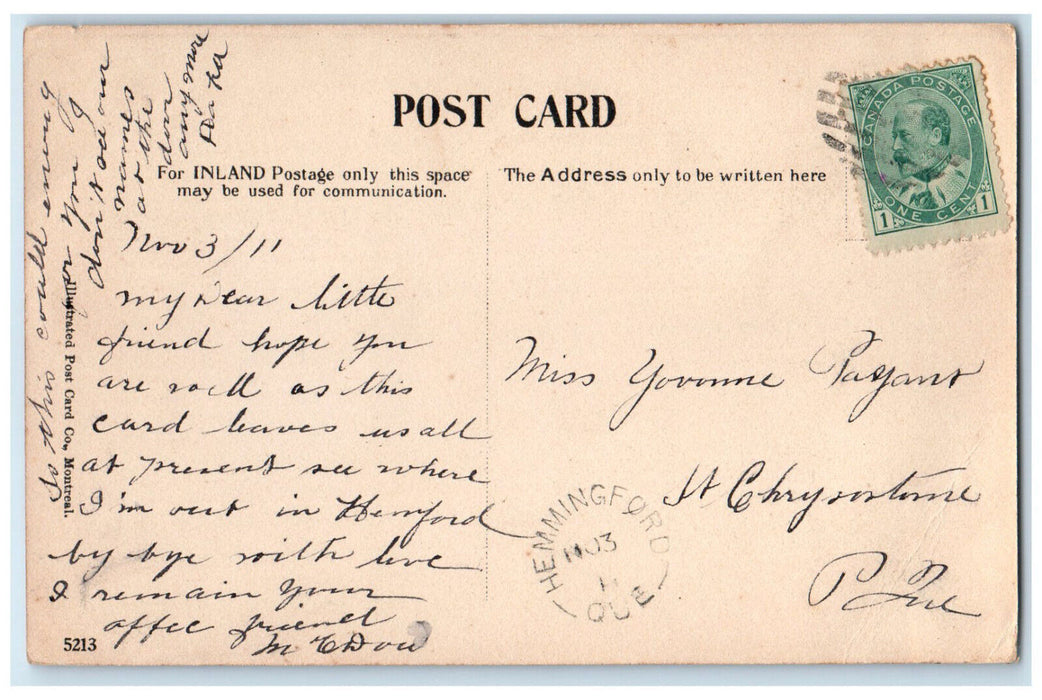 POST CARD
For INLAND Postage only this space
may be used for communication.
The Address only to be written here
CANADA POSTAGE
1 ONE CENT 1
Nov 3/11
my Dear little
friend hope you
are well as this
card leaves us all
at present see where
I'm out in Hemford
by bye with love
I remain your
affec friend
So this could
you
don't see our
names
at the
any more
Miss Yovonne
St Chrysostome
P Que
HEMMINGFORD
NO 3
11
QUE
Illustrated Post Card Co., Montreal.
5213